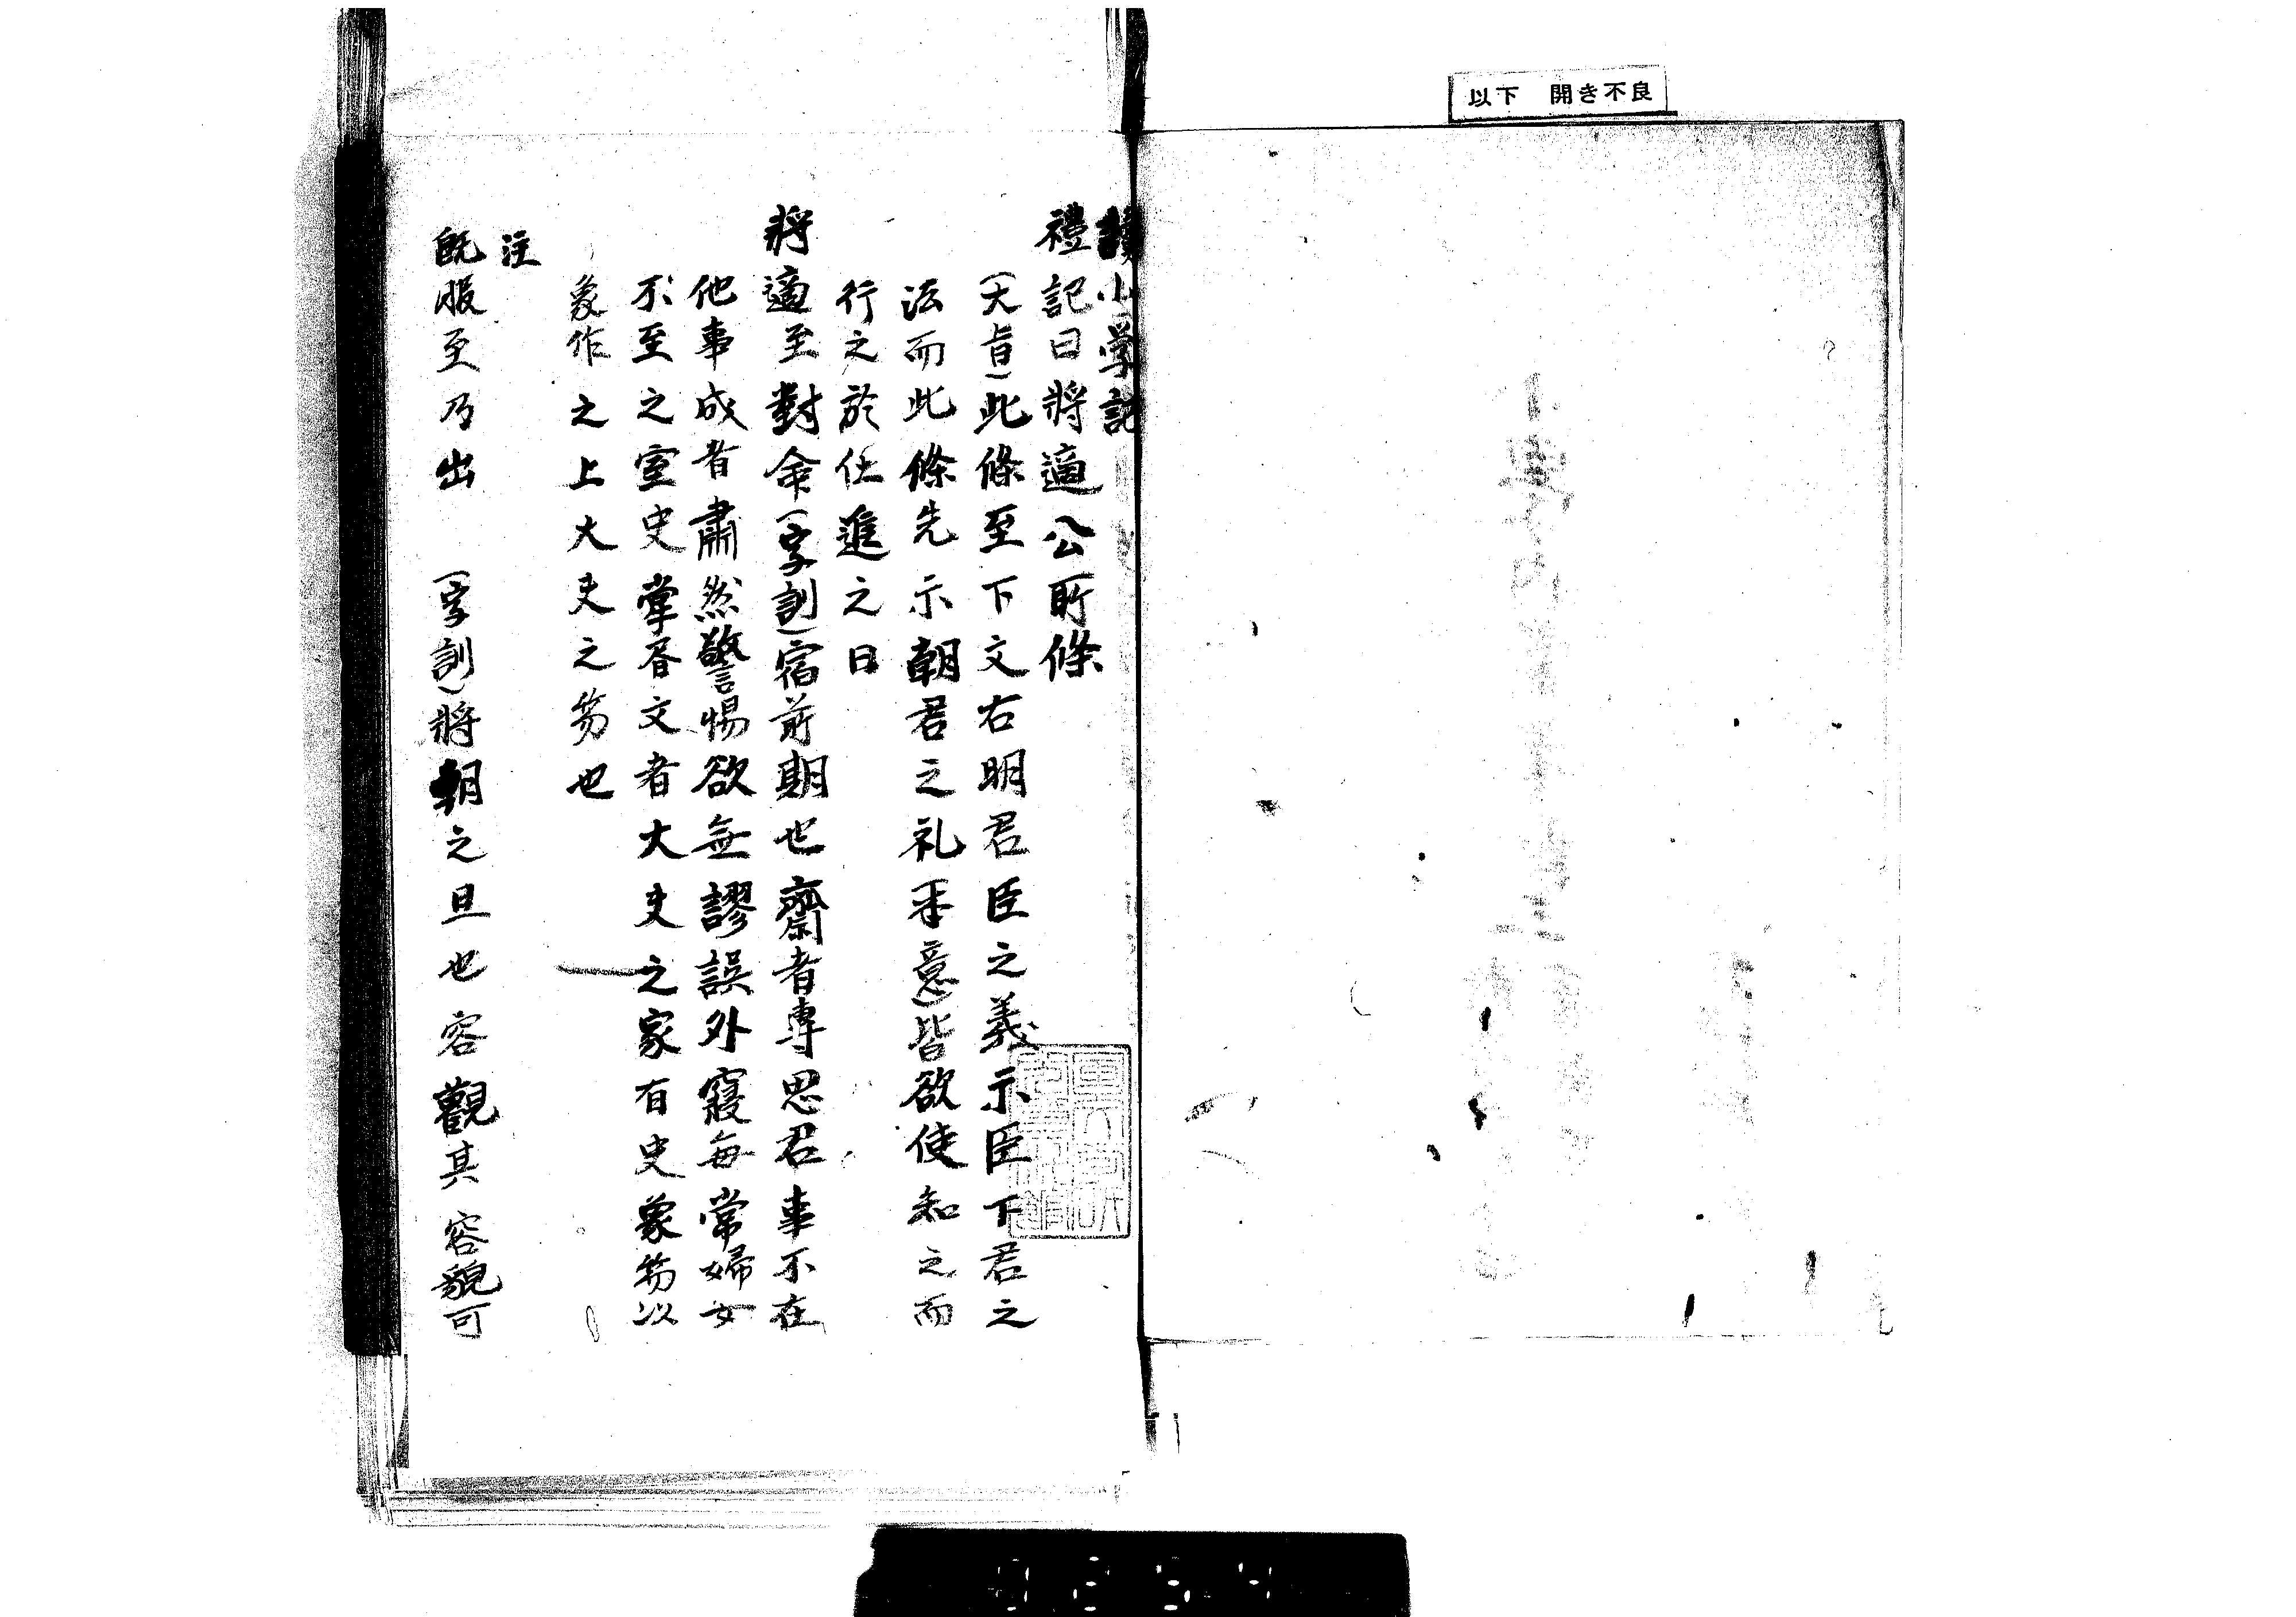 以下 開き不良
讀小学記
禮記曰將適公所條
(大旨)此條至下文右明君臣之義示臣下君之
法而此條先示朝君之礼(本意)皆欲使知之而
行之於仕進之日
將適至對命(字訓)宿前期也齋者専思君事不在
他事成者肅然警惕欲無謬誤外寢毎常婦女
不至之室史掌唇文者大夫之家有史象笏以
象作之上大夫之笏也
注
既服至乃出 (字訓)將朝之旦也容觀其容貌可